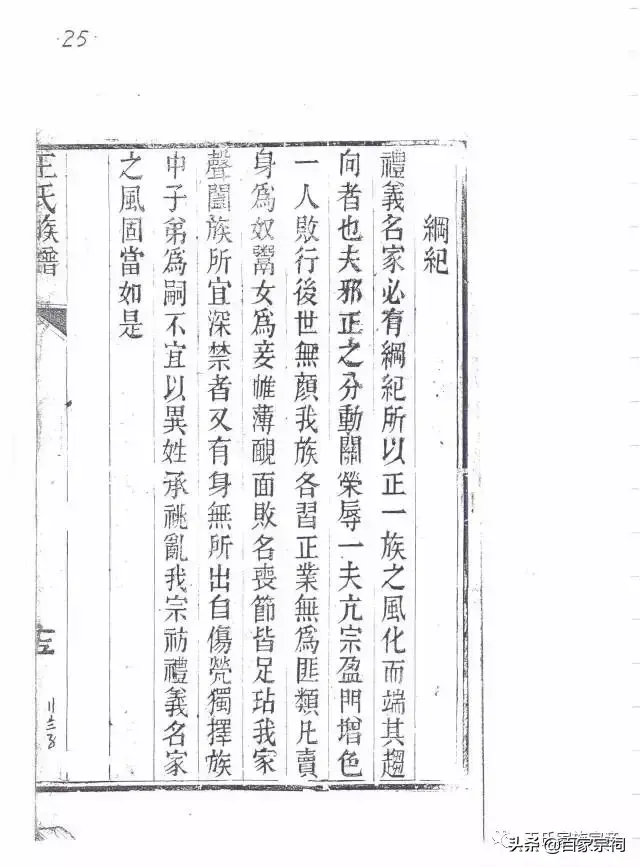 25
綱紀
禮義名家必有綱紀所以正一族之風化而端其趨
向者也夫邪正之分動關榮辱一夫亢宗盈門增色
一人敗行後世無顏我族各習正業無為匪類凡賣
身為奴鬻女為妾帷薄靦面敗名喪節皆足玷我家
聲闔族所宜深禁者又有身無所出自傷煢獨擇族
中子弟為嗣不宜以異姓承祧亂我宗祊禮義名家
之風固當如是
王氏族譜
王氏家族宗亲
头条 @百家宗祠